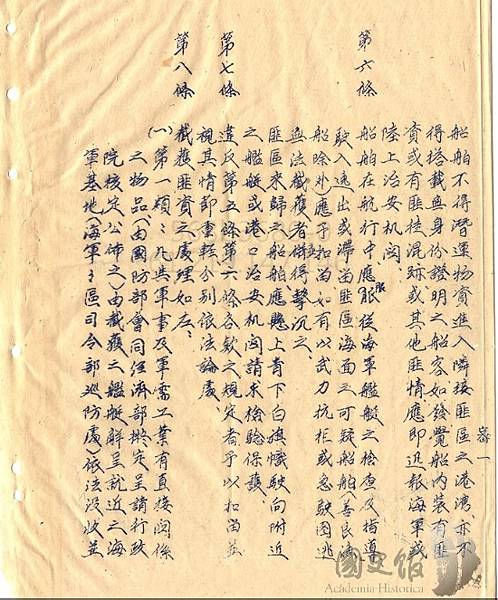 船舶不得潛運物資進入隣接匪區之港湾亦不
得搭載無身份證明之船客如發覺船內装有匪
資或有匪徒混跡或其他匪情應即迅報海軍或
陸上治安机関
第六條
船舶在航行中應服從海軍艦艇之检查及指導
駛入逃出或滯畄匪區海面之可疑船舶(善良漁
船除外)應予扣畄如有以武力抗柜或急駛图逃
無法截獲者併得擊沉之
匪區來歸之船舶應懸上青下白旗幟駛向附近
之艦艇或港口治安机関請求检驗保護
第七條
違反第五條第六條各欵之規定者予以扣畄並
視其情節重輕分别依法論處
第八條
截獲匪資之處理如左:
(一)第一項:凡與軍事及軍需工業有直接関係
之物品(由國防部會同经濟部擬定呈請行政
院核定公佈之)由截獲之艦艇解呈就近之海
軍基地(海軍区司令部巡防處)依法没收並
國史館
Academia Historica